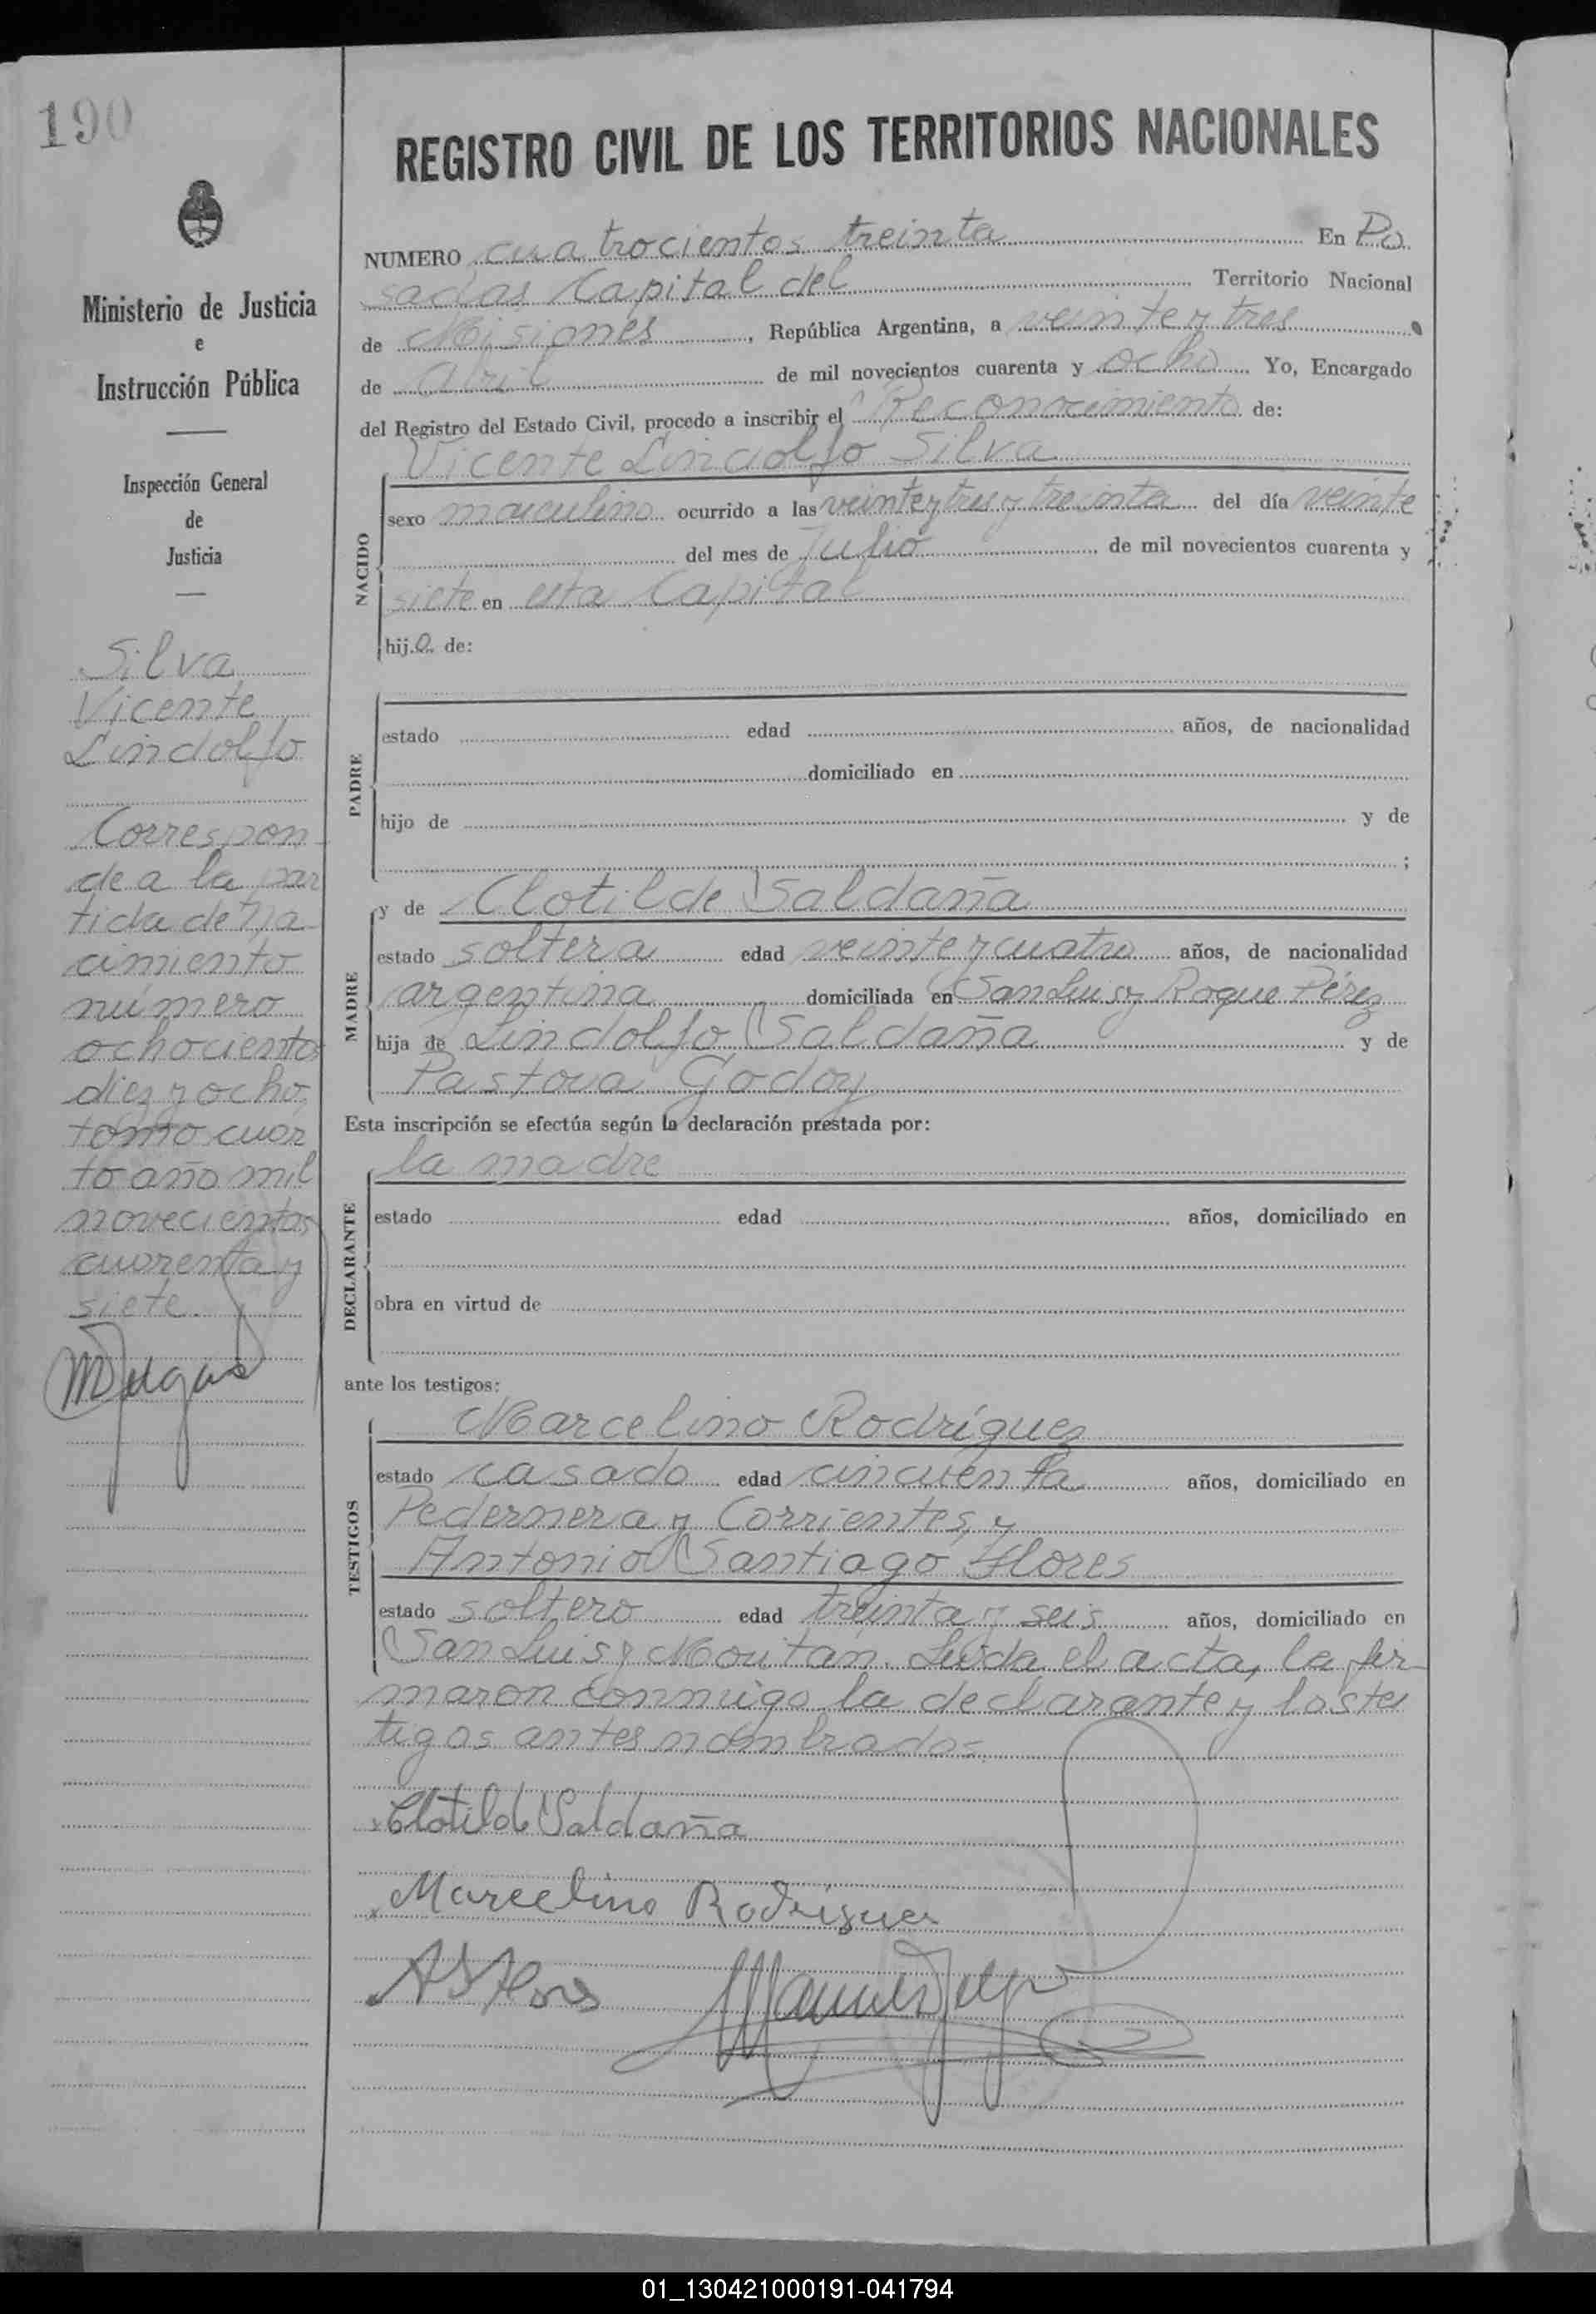 190
REGISTRO CIVIL DE LOS TERRITORIOS NACIONALES
NUMERO cuatrocientos treinta En Po
sadas Capital del Territorio Nacional
de Misiones, República Argentina, a veinte y tres
de Abril de mil novecientos cuarenta y ocho. Yo, Encargado
del Registro del Estado Civil, procedo a inscribir el Reconocimiento de:
Vicente Lindolfo Silva
NACIDO
sexo masculino ocurrido a las veinte y tres y treinta del día veinte
del mes de Julio de mil novecientos cuarenta y
siete en esta Capital
hijo de:
PADRE
estado edad años, de nacionalidad
domiciliado en
hijo de y de
;
MADRE
y de Clotilde Saldaña
estado soltera edad veinte y cuatro años, de nacionalidad
argentina domiciliada en San Luis y Roque Pérez
hija de Lindolfo Saldaña y de
Pastora Godoy
Esta inscripción se efectúa según la declaración prestada por:
la madre
DECLARANTE
estado edad años, domiciliado en
obra en virtud de
ante los testigos:
TESTIGOS
Marcelino Rodríguez
estado casado edad cincuenta años, domiciliado en
Pedernera y Corrientes, y
Antonio Santiago Flores
estado soltero edad treinta y seis años, domiciliado en
San Luis y Moritán. Leída el acta, la fir
maron conmigo la declarante y los tes
tigos antes nombrados.
Clotilde Saldaña
Marcelino Rodriguez
A S Flores
Ministerio de Justicia
e
Instrucción Pública
Inspección General
de
Justicia
Silva
Vicente
Lindolfo
Correspon
de a la par
tida de Na
cimiento
número
ochocientos
diez y ocho,
tomo cuar
to año mil
novecientos
cuarenta y
siete.
01_130421000191-041794